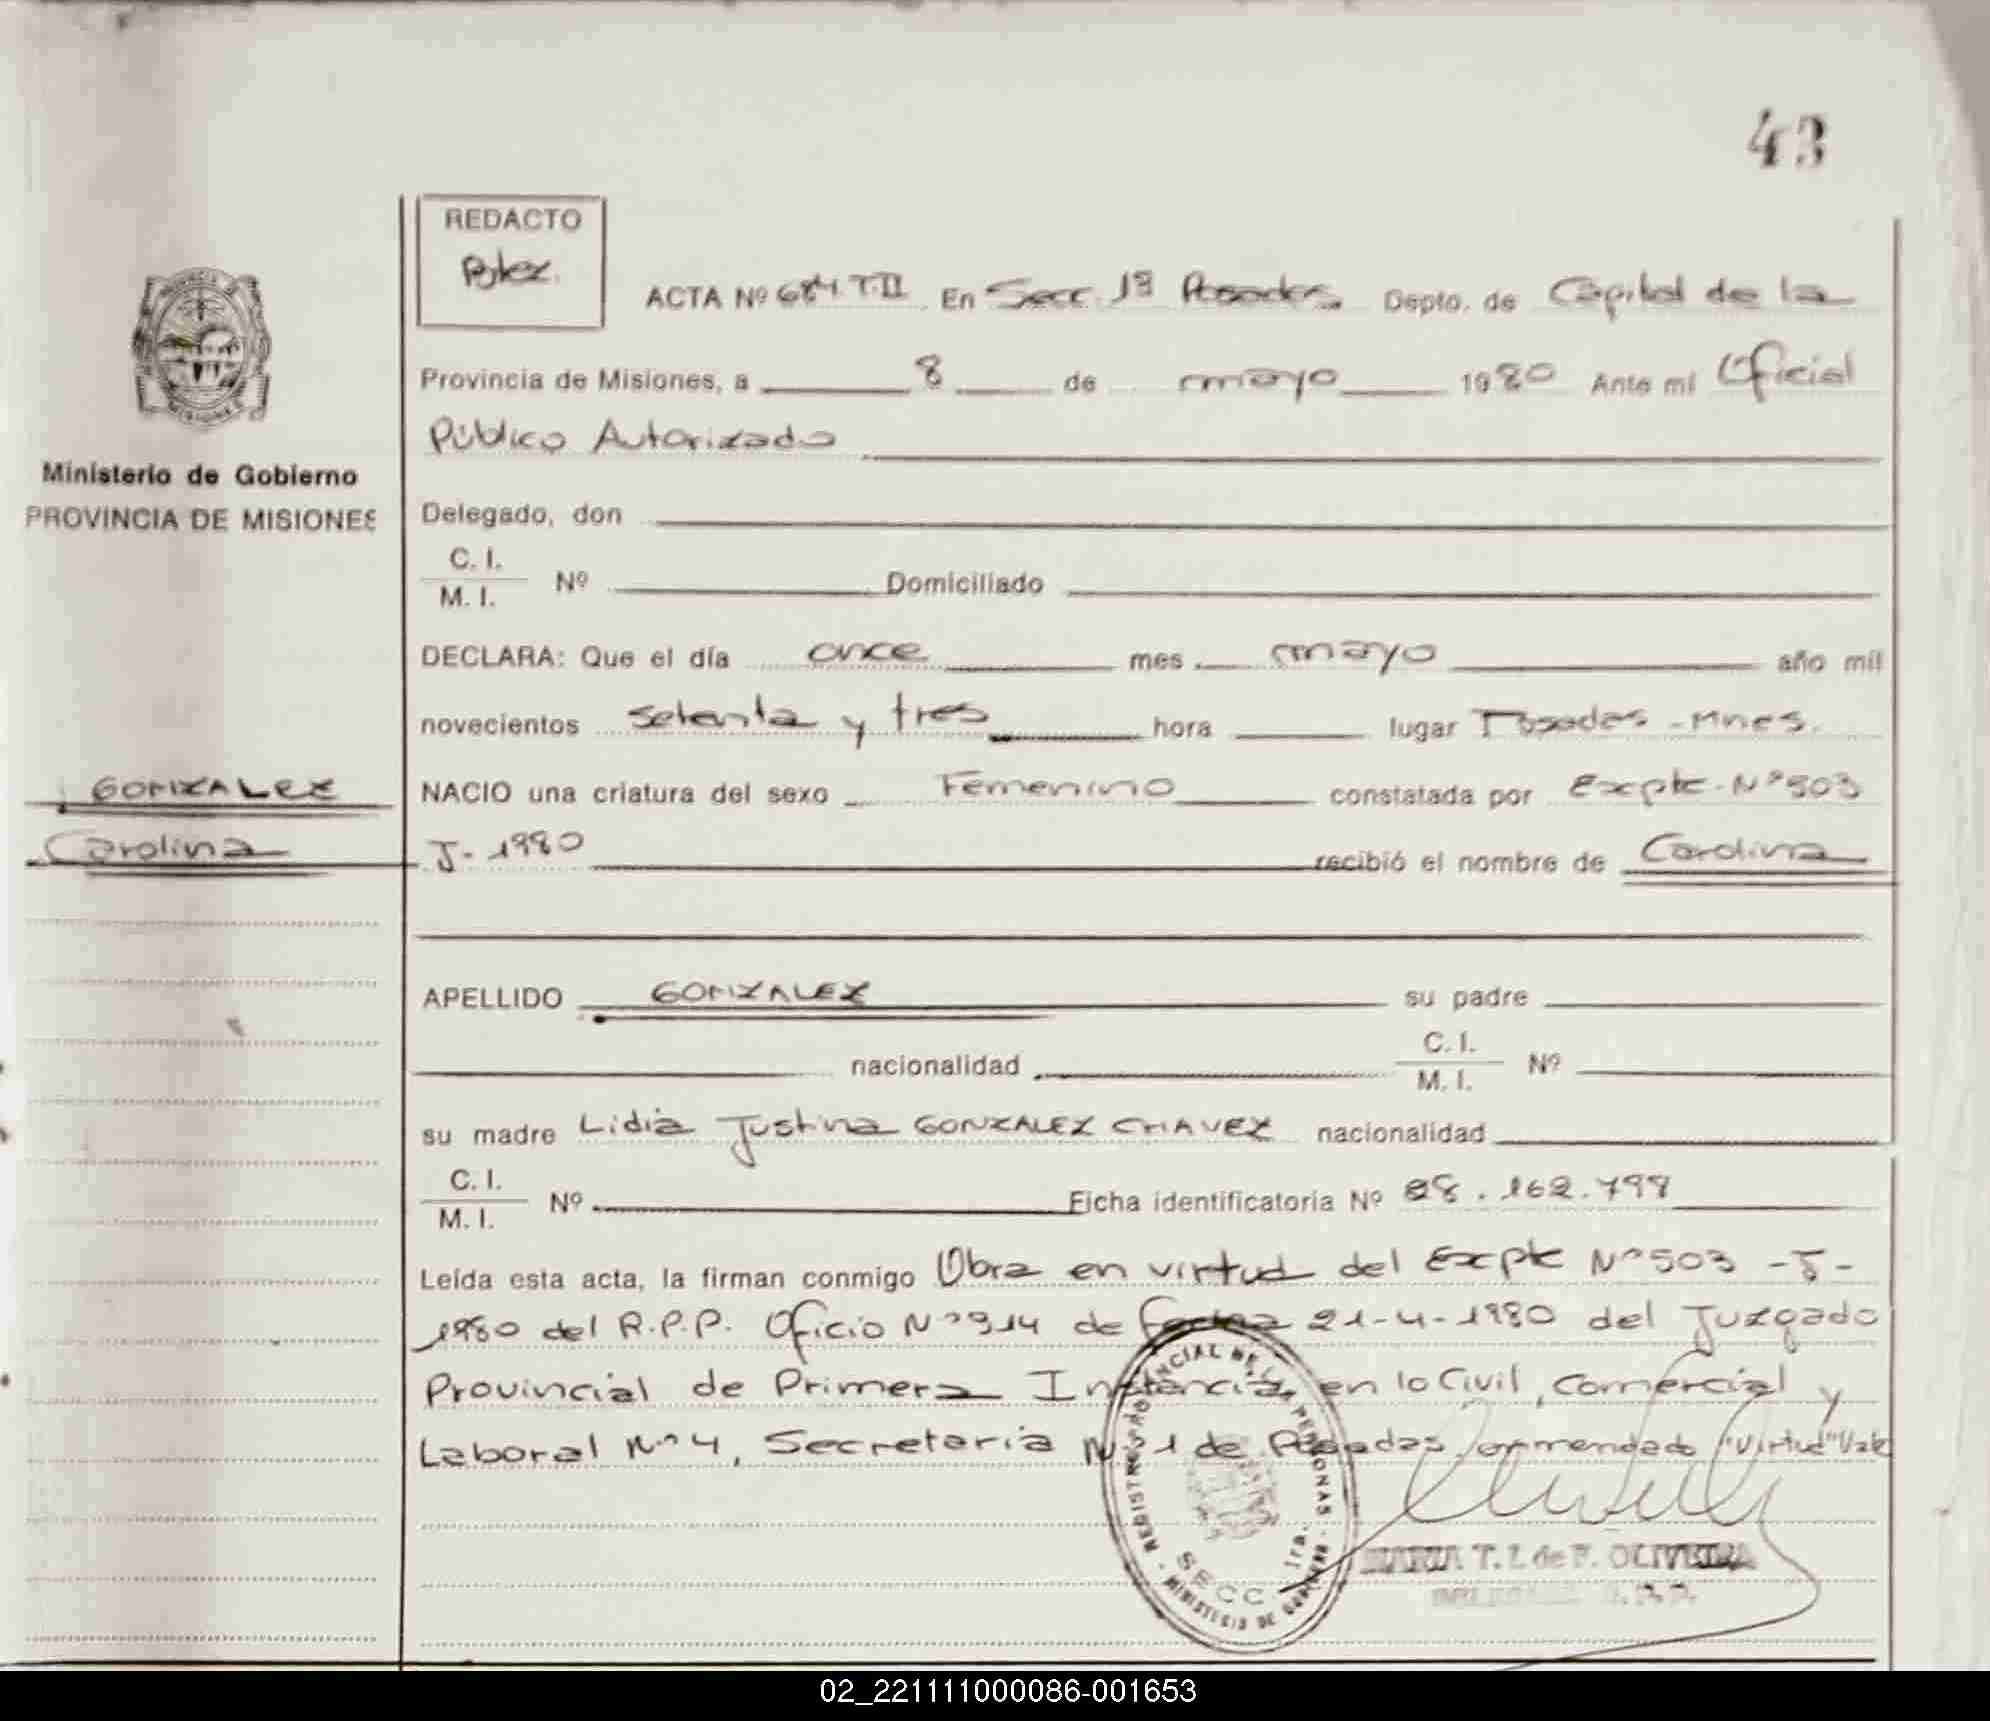 43
REDACTO
ACTA Nº 684 T.II En Secc. 1ª Posadas, Depto. de Capital de la
Provincia de Misiones, a 8 de mayo 1980 Ante mí Oficial
Público Autorizado
Ministerio de Gobierno
PROVINCIA DE MISIONES
Delegado, don
C. I.
M. I. Nº Domiciliado
DECLARA: Que el día once mes mayo año mil
novecientos setenta y tres hora lugar Posadas - Mnes.
GONZALEZ
Carolina
NACIO una criatura del sexo Femenino constatada por Expte. Nº 503
J- 1980 recibió el nombre de Carolina
APELLIDO GONZALEZ su padre
nacionalidad C. I.
M. I. Nº
su madre Lidia Justina GONZALEZ CHAVEZ nacionalidad
C. I.
M. I. Nº Ficha identificatoria Nº 28.162.799
Leída esta acta, la firman conmigo Obra en virtud del Expte Nº 503 -J-
1980 del R.P.P. Oficio Nº 914 de fecha 21-4-1980 del Juzgado
Provincial de Primera Instancia en lo Civil, Comercial y
Laboral Nº 4, Secretaria Nº 1 de Posadas, enmendado "virtud" Vale
REGISTRO PROVINCIAL DE LAS PERSONAS
SECC. 1ra.
MINISTERIO DE GOBIERNO
MARIA T. I. de F. OLIVEIRA
02_221111000086-001653